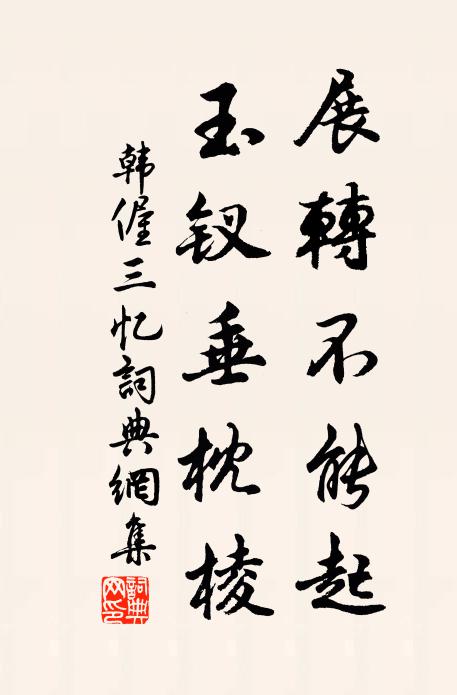 展轉不能起
玉釵垂枕棱
韩偓三忆詞典網集
詞典網印